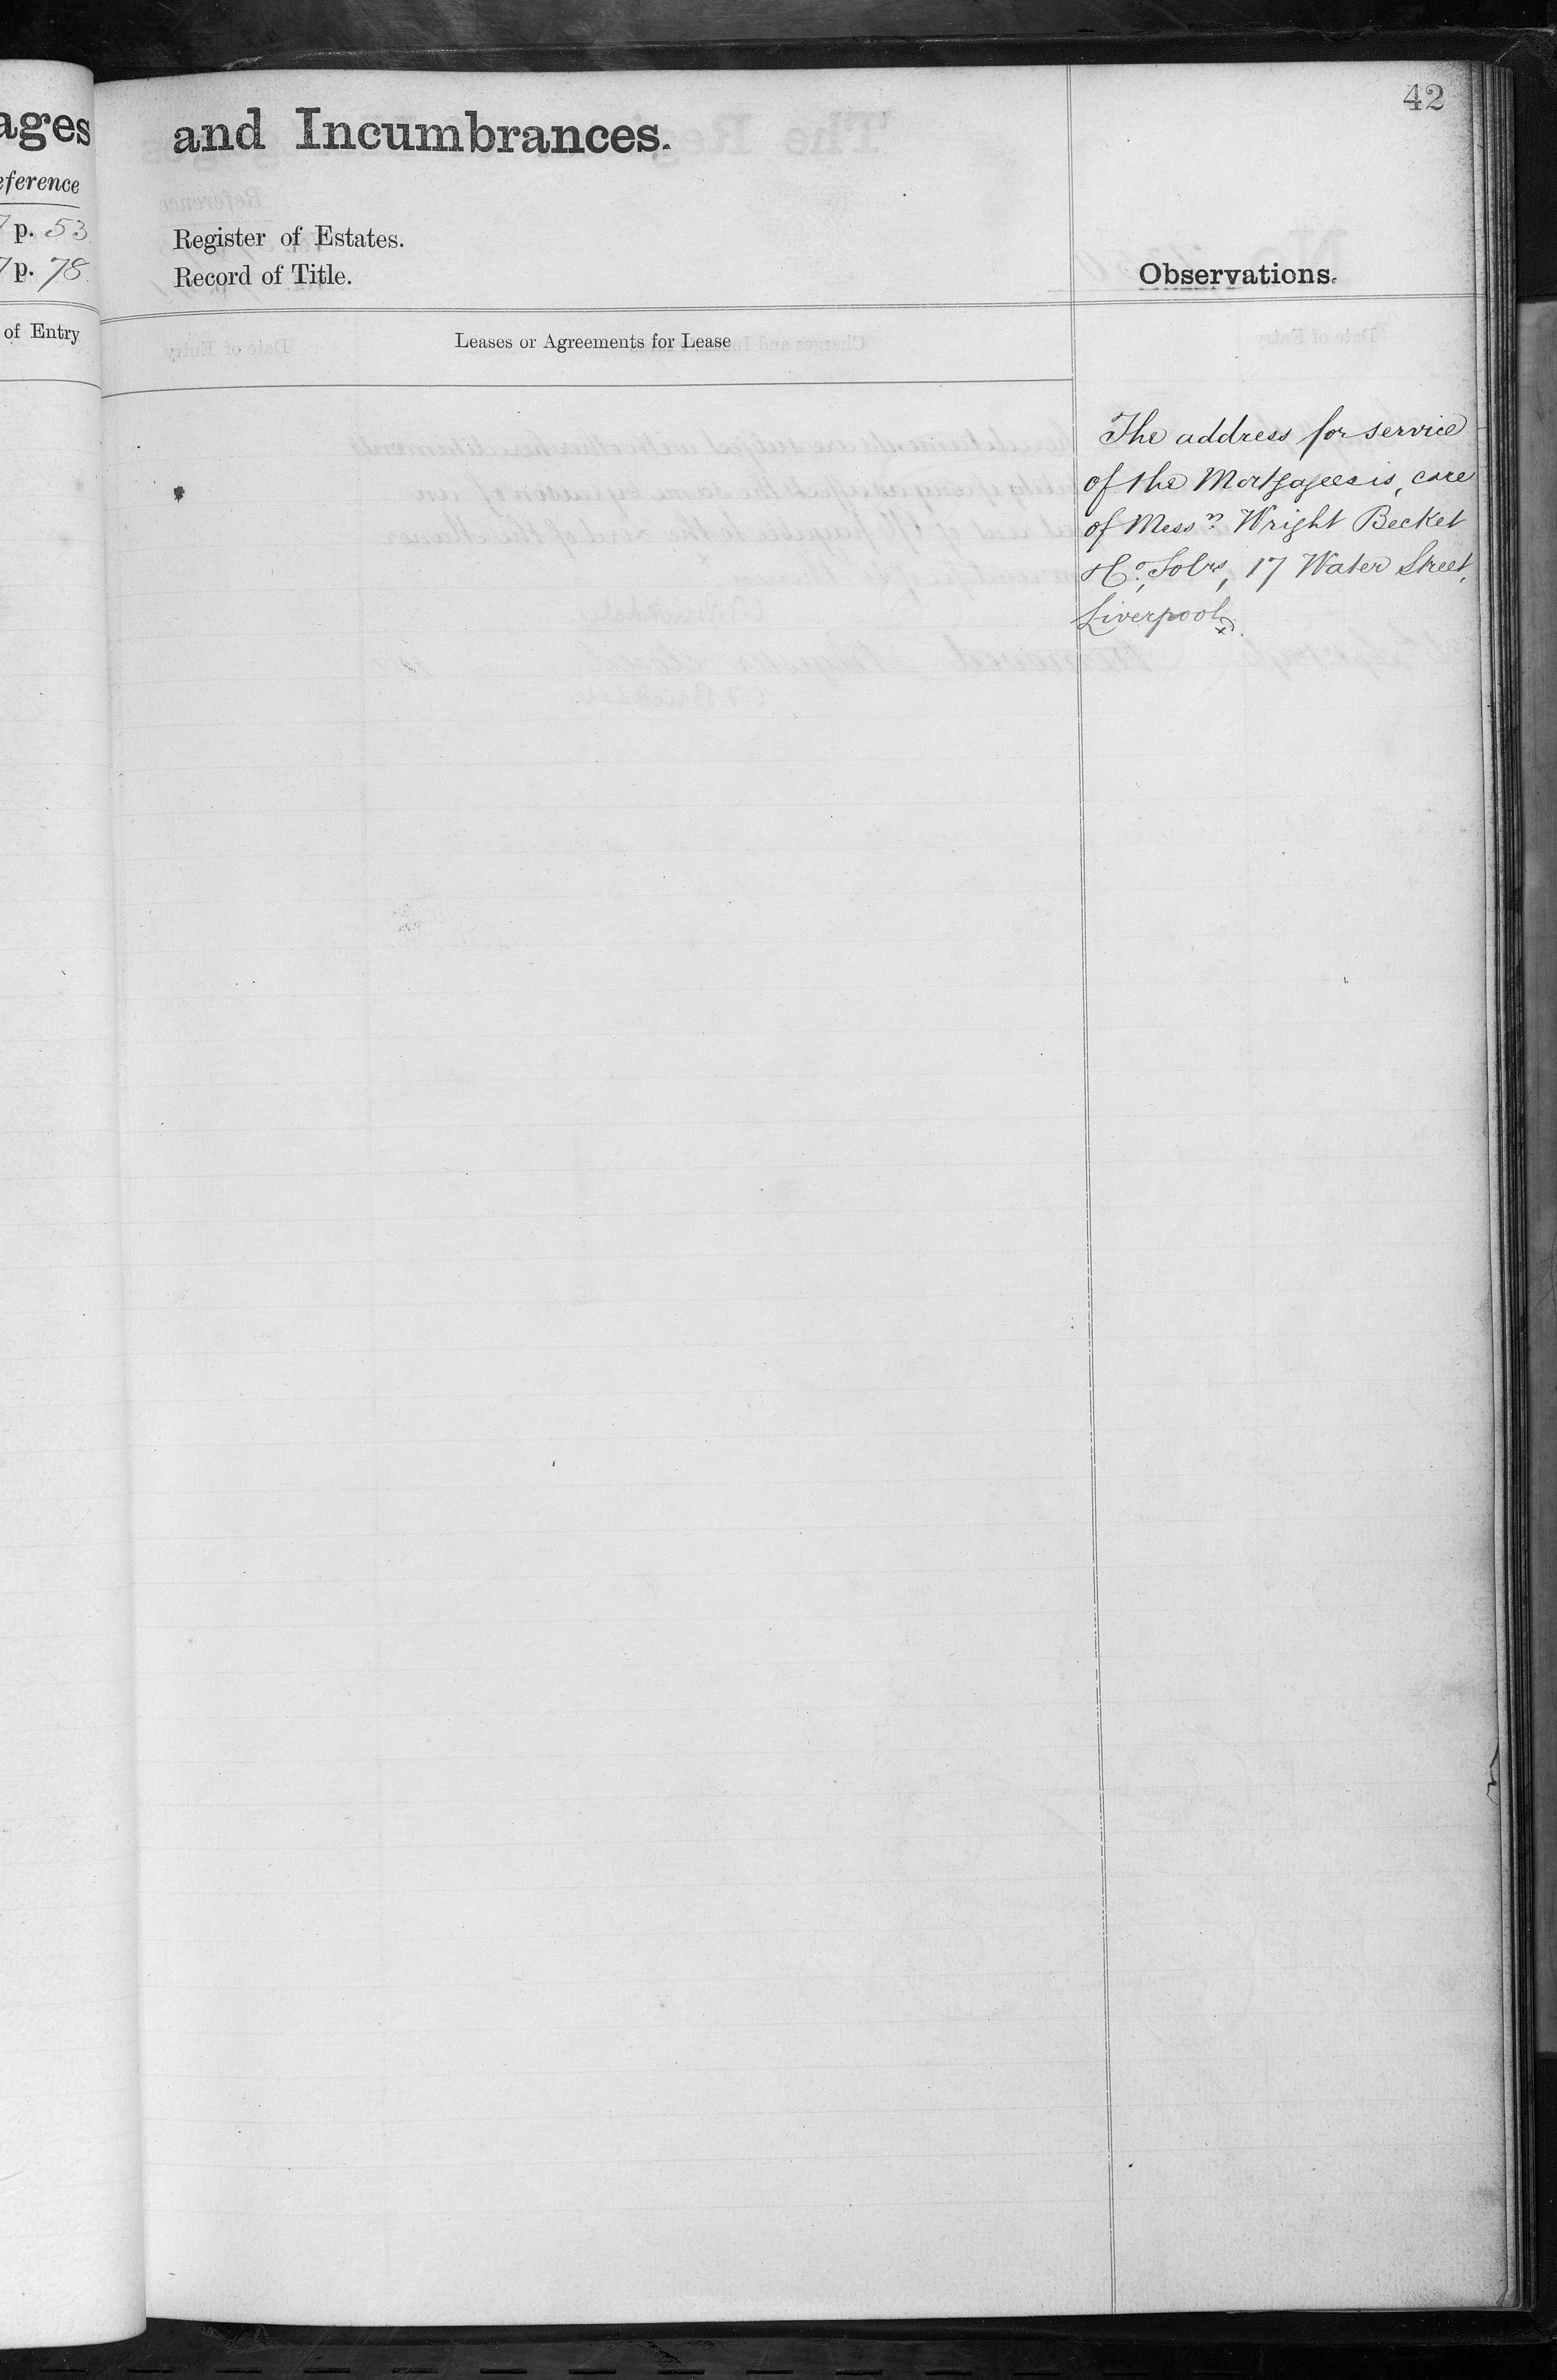 42
ages
and Incumbrances.
eference
p. 53
Register of Estates.
p. 78
Record of Title.
Observations.
of Entry
Leases or Agreements for Lease
The address for service
of the Mortgagees is, care
of Mess.rs Wright Becket
& Co., Solrs, 17 Water Street,
Liverpool.